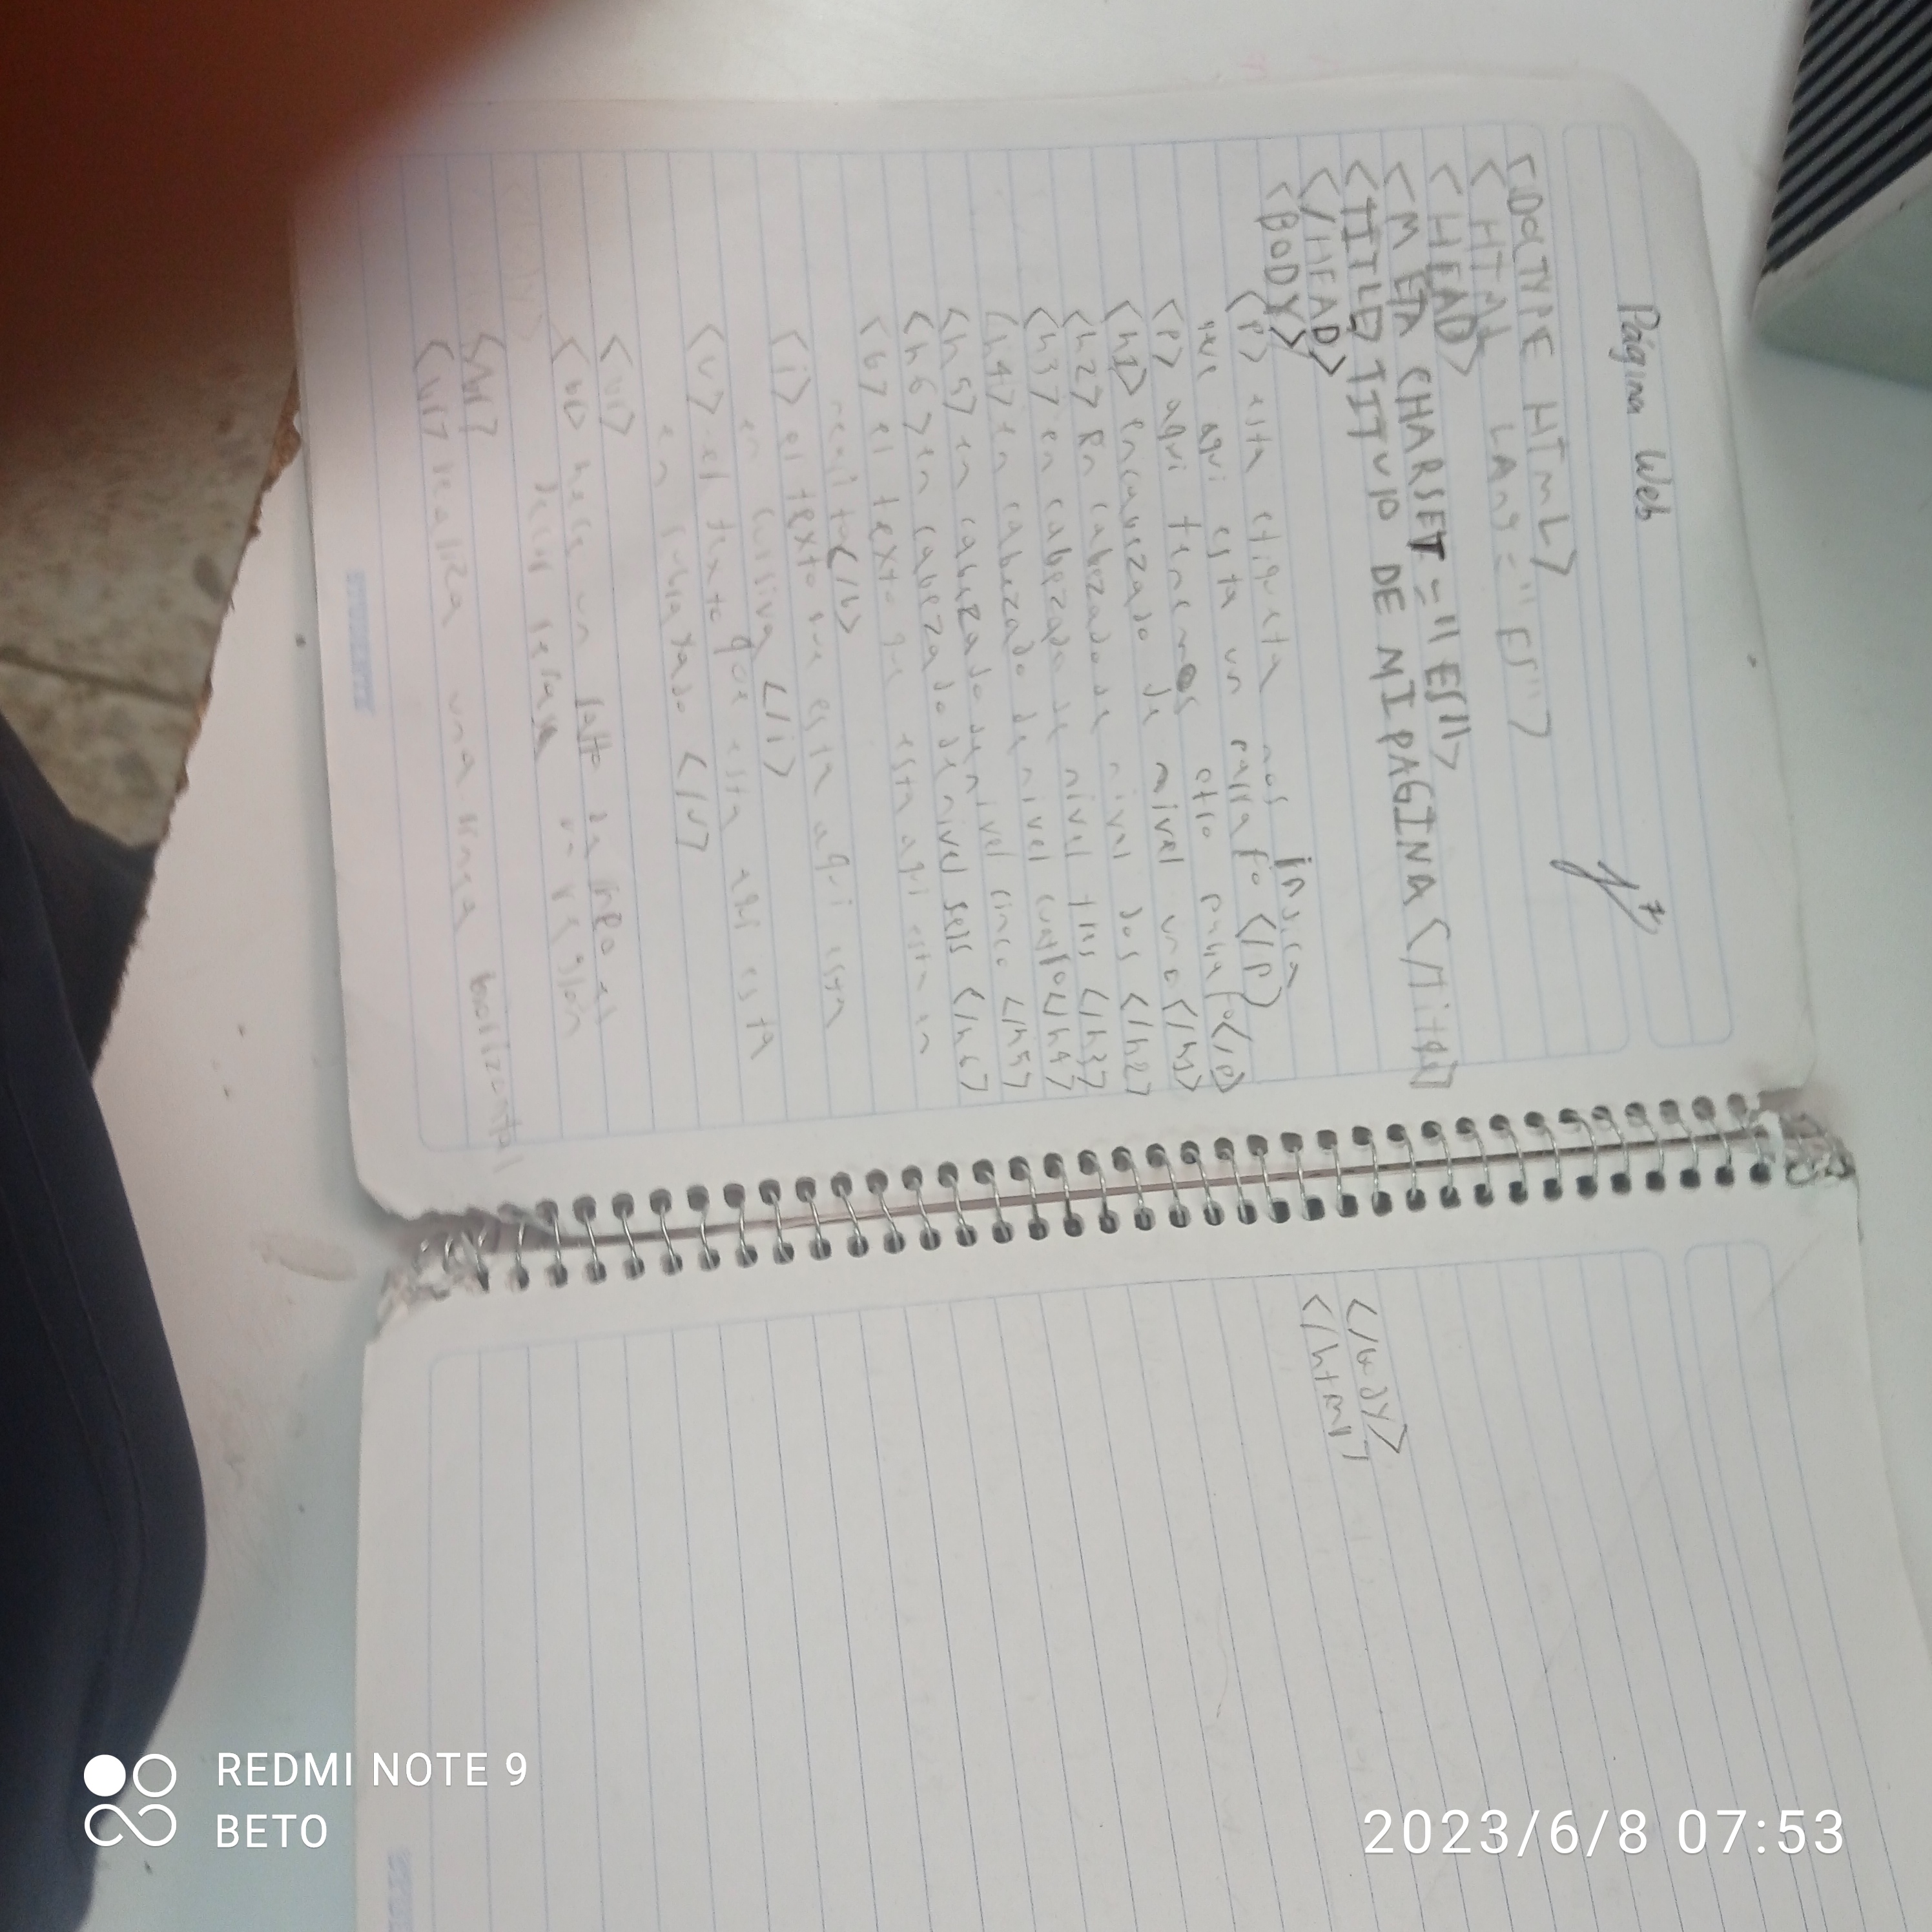 Página Web
<DOCTYPE HTML>
<HTML LAng="ES">
<HEAD>
<META CHARSET="ES">
<TITLE> TITULO DE MI PAGINA </Title>
</HEAD>
<BODY>
<P> esta etiqueta nos indica
que aqui esta un parrafo </P>
<P> aqui tenemos otro parrafo</P>
<h1> encabezado de nivel uno</h1>
<h2> En cabezado de nivel dos </h2>
<h3> en cabezado de nivel tres </h3>
<h4> en cabezado de nivel cuatro</h4>
<h5> en cabezado de nivel cinco </h5>
<h6> en cabezado de nivel seis </h6>
<b> el texto qe esta aqui esta en
negrita</b>
<i> el texto que esta aqui esta
en cursiva </i>
<u> el texto que esta aqui esta
en subrayado </u>
<br>
<br> hace un salto de linea es
decir un renglon
<hr>
<hr> realiza una linea horizontal
</body>
</html>
STUDENTS
REDMI NOTE 9
BETO
2023/6/8 07:53